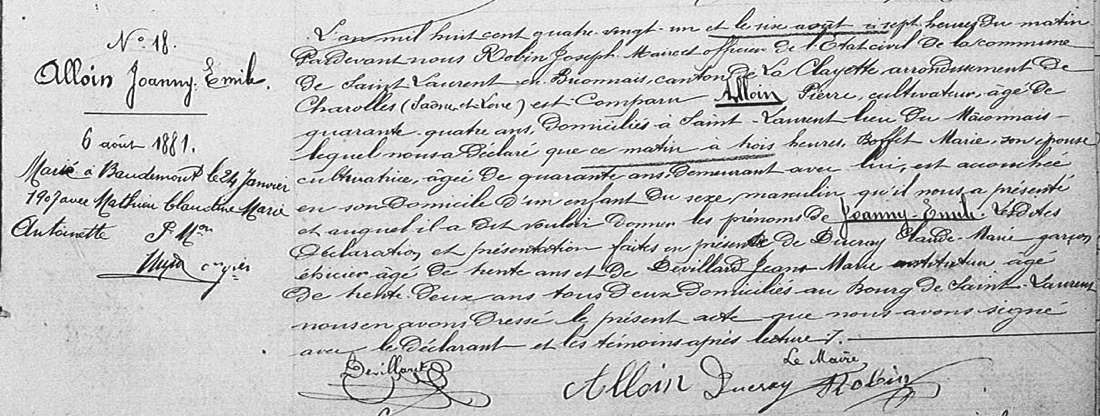 N° 18.
Alloin Joanny-Emile.
6 août 1881.
Marié à Baudemont le 24 Janvier
1907 avec Mathieu Claudine Marie
Antoinette P. Mon
L'an mil huit cent quatre-vingt-un et le six août à sept heures du matin
Pardevant nous Robin Joseph Maire et officier de l'Etat civil de la commune
de Saint Laurent en Brionnais, canton de La Clayette arrondissement de
Charolles (Saône-et-Loire) est comparu Alloin Pierre, cultivateur, âgé de
quarante-quatre ans, domiciliés à Saint-Laurent lieu du Mâconnais-
lequel nous a déclaré que ce matin à trois heures, Boffet Marie, son épouse
cultivatrice, âgée de quarante ans, demeurant avec lui, est accouchée
en son domicile d'un enfant du sexe masculin qu'il nous a présenté
et auquel il a dit vouloir donner les prénoms de Joanny-Emile. Lesdites
déclaration et présentation faites en présence de Ducray Claude-Marie garçon
épicier âgé de trente ans et de Devillard Jean-Marie instituteur âgé
de trente-deux ans tous deux domiciliés au Bourg de Saint-Laurent
nous en avons dressé le présent acte que nous avons signé
avec le déclarant et les témoins après lecture.
Le Maire
Devillard Alloin Ducray Robin